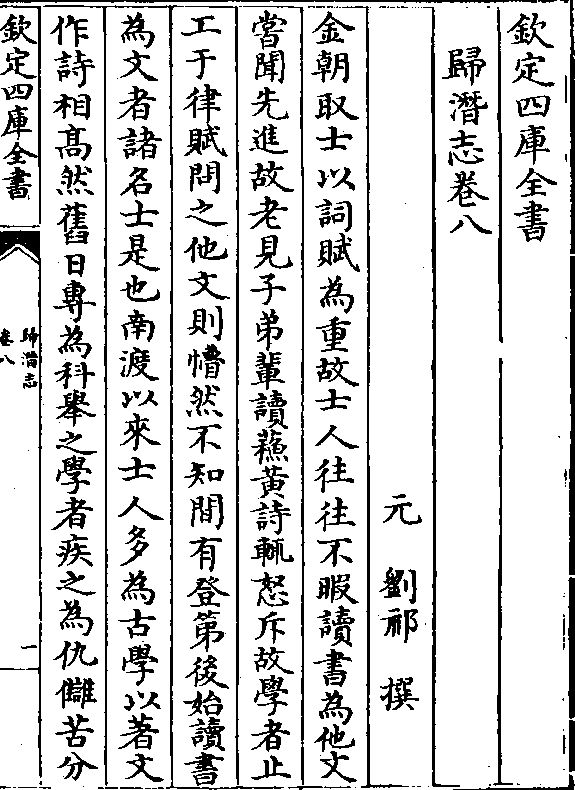 欽定四庫全書
歸潛志卷八
元 劉祁 撰
金朝取士以詞賦為重故士人往往不暇讀書為他文
嘗聞先進故老見子弟輩讀蘇黃詩輒怒斥故學者止
工于律賦問之他文則懵然不知間有登第後始讀書
為文者諸名士是也南渡以來士人多為古學以著文
作詩相高然舊日專為科舉之學者疾之為仇讎苦分
欽定四庫全書
歸潛志
卷八
一